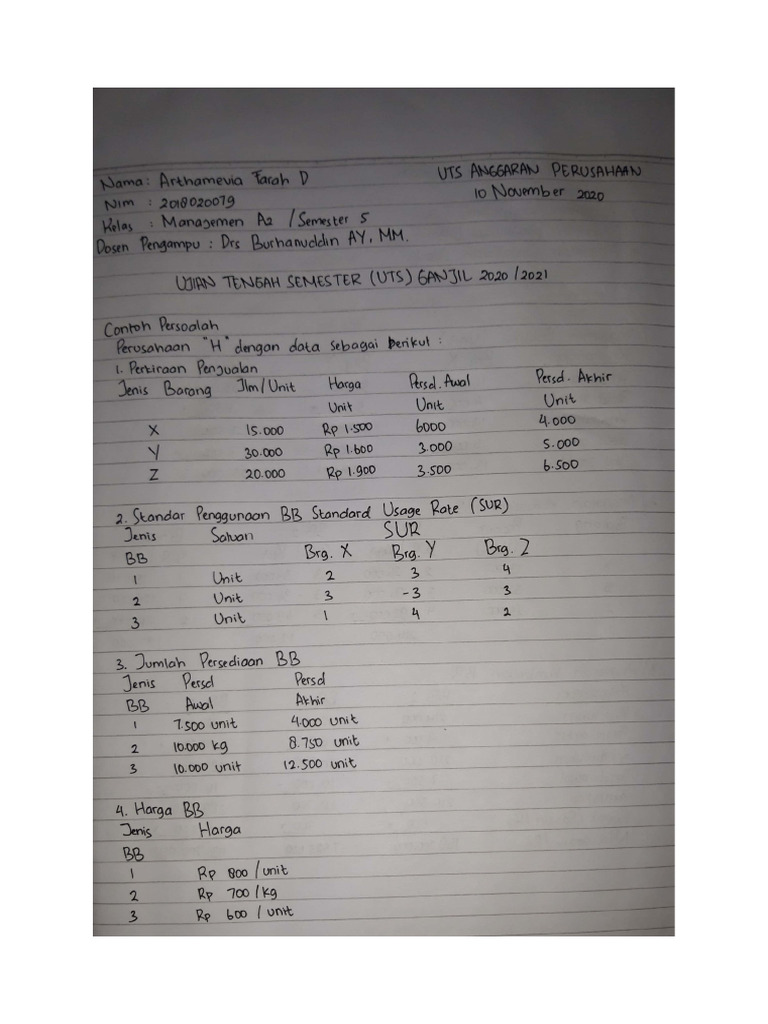 Nama: Arthamevia Farah D UTS ANGGARAN PERUSAHAAN
Nim : 2018020079 10 November 2020
Kelas : Manajemen A2 / Semester 5
Dosen Pengampu : Drs Burhanuddin AY, MM.
UJIAN TENGAH SEMESTER (UTS) GANJIL 2020/2021
Contoh Persoalah
Perusahaan "H" dengan data sebagai berikut :
1. Perkiraan Penjualan
Jenis Barang Jlm/Unit Harga Persd. Awal Persd. Akhir
Unit Unit Unit
X 15.000 Rp 1.500 6000 4.000
Y 30.000 Rp 1.600 3.000 5.000
Z 20.000 Rp 1.900 3.500 6.500
2. Standar Penggunaan BB Standard Usage Rate (SUR)
Jenis Satuan SUR
BB Brg. X Brg. Y Brg. Z
1 Unit 2 3 4
2 Unit 3 -3 3
3 Unit 1 4 2
3. Jumlah Persediaan BB
Jenis Persd Persd
BB Awal Akhir
1 7.500 unit 4.000 unit
2 10.000 kg 8.750 unit
3 10.000 unit 12.500 unit
4. Harga BB
Jenis Harga
BB
1 Rp 800 / unit
2 Rp 700 / kg
3 Rp 600 / unit